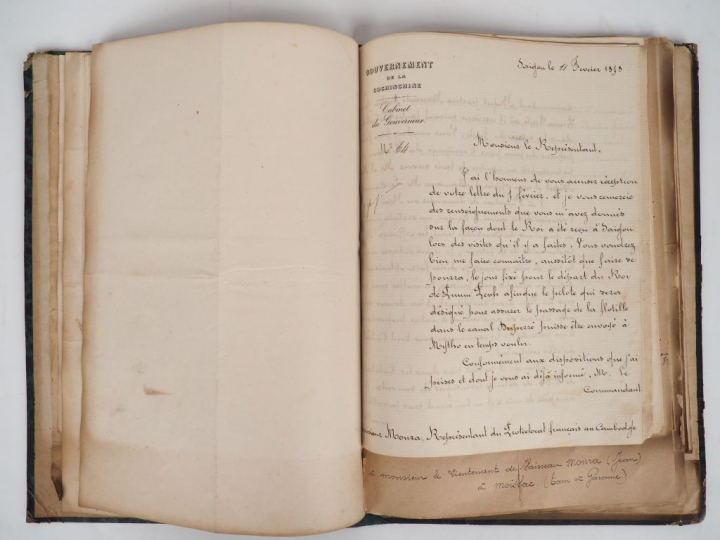 GOUVERNEMENT
DE LA
COCHINCHINE
Cabinet
du Gouverneur
Nº 64
Saigon le 11 Février 1878
Monsieur le Représentant,
J'ai l'honneur de vous accuser réception
de votre lettre du 7 février, et je vous remercie
des renseignements que vous m'avez donnés
sur la façon dont le Roi a été reçu à Saigon
lors des visites qu'il y a faites. Vous voudrez
bien me faire connaître, aussitôt que faire se
pourra, le jour fixé pour le départ du Roi
de Pnum Penh afin que le pilote qui sera
désigné pour assurer le passage de la flotille
dans le canal Duperré puisse être envoyé à
Mytho en temps voulu.
Conformément aux dispositions que j'ai
prises et dont je vous ai déjà informé, M. le
Commandant
Moura, Représentant du Protectorat français au Cambodge
à monsieur le Lieutenant de Vaisseau Moura (Jean)
à Moissac (Tarn et Garonne)